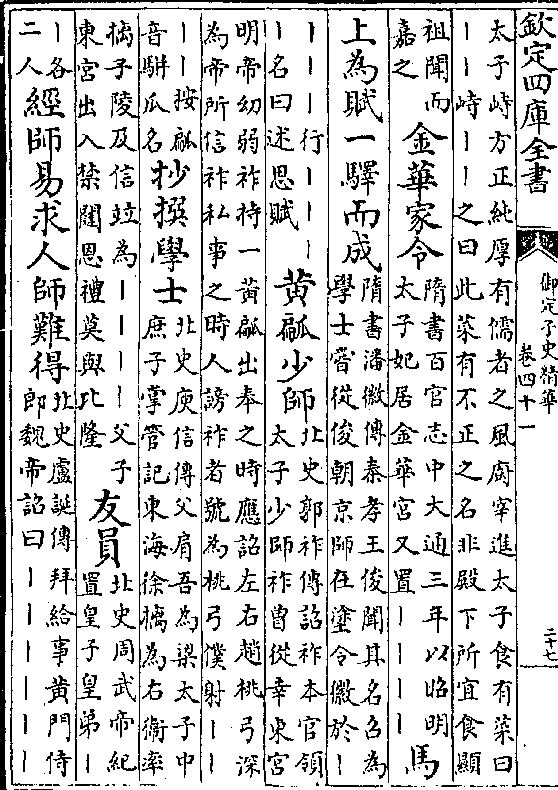 欽定四庫全書
御定子史精華
卷四十一
二十七
太子峙方正純厚有儒者之風廚宰進太子食有菜曰
丨丨峙丨丨之曰此菜有不正之名非殿下所宜食顯
祖聞而
嘉之
金華家令
隋書百官志中大通三年以昭明
太子妃居金華宮又置丨丨丨丨
馬
上為賦一驛而成
隋書潘徽傳秦孝王俊聞其名召為
學士嘗從俊朝京師在塗令徽於丨
丨丨丨行丨丨丨
丨名曰述思賦
黃㼐少師
北史郭祚傳詔祚本官領
太子少師祚曾從幸東宮
明帝幼弱祚持一黃㼐出奉之時應詔左右趙桃弓深
為帝所信祚私事之時人謗祚者號為桃弓僕射丨丨
丨丨按㼐
音騈瓜名
抄撰學士
北史庾信傳父肩吾為梁太子中
庶子掌管記東海徐摛為右衛率
摛子陵及信竝為丨丨丨丨父子
東宮出入禁闥恩禮莫與比隆
友員
北史周武帝紀
置皇子皇弟丨
丨各
二人
經師易求人師難得
北史盧誕傳拜給事黃門侍
郎魏帝詔曰丨丨丨丨